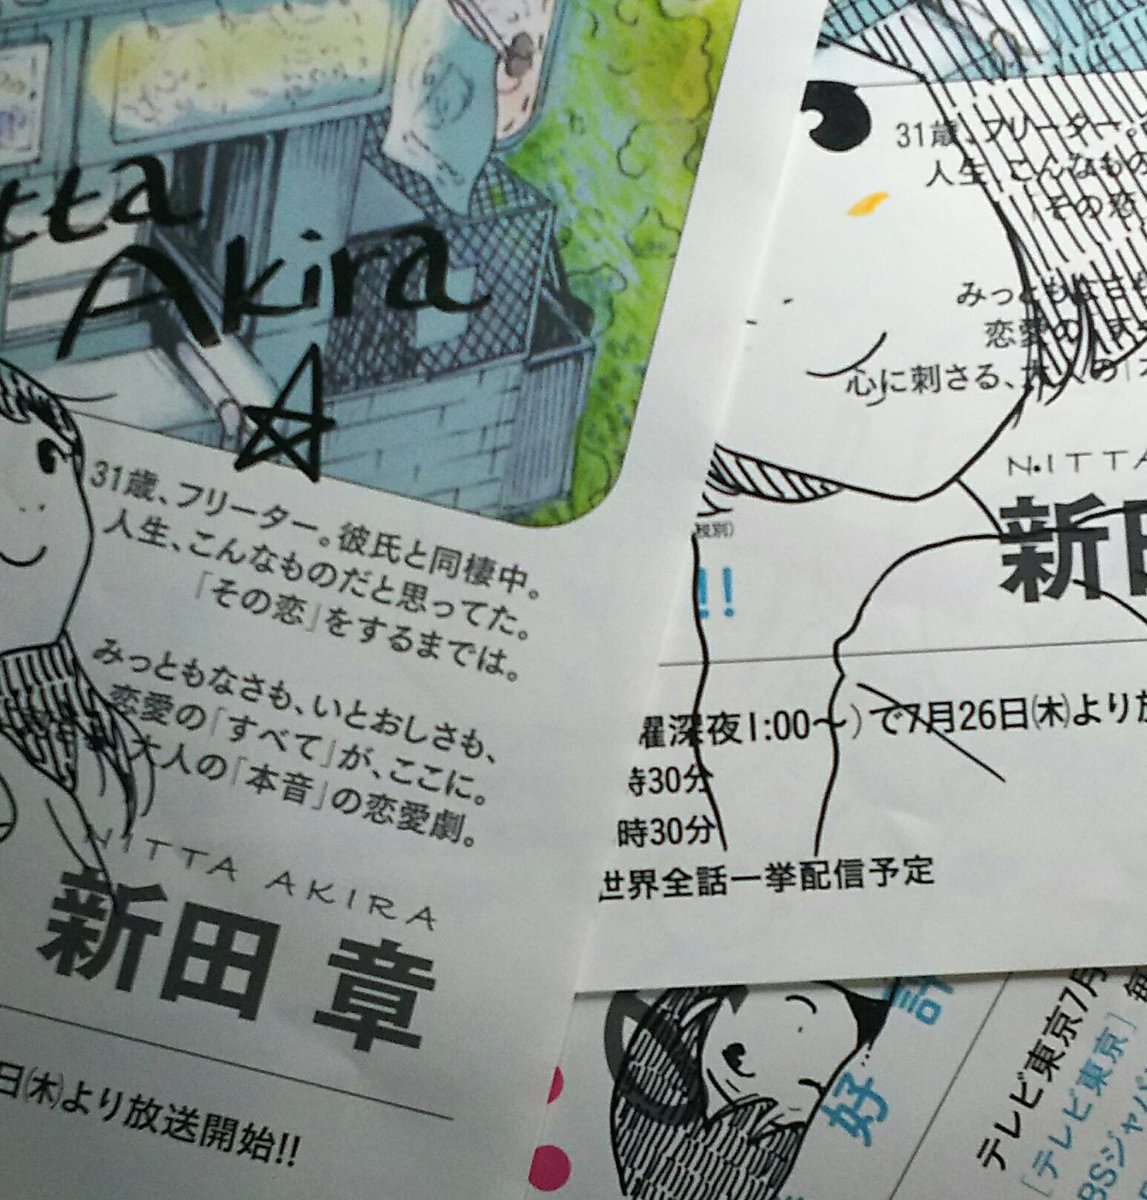 tta
Akira
31歳、フリーター。彼氏と同棲中。
人生、こんなものだと思ってた。
「その恋」をするまでは。
みっともなさも、いとおしさも、
恋愛の「すべて」が、ここに。
大人の「本音」の恋愛劇。
NITTA AKIRA
新田 章
日㈭より放送開始!!
31歳、フリーター
人生、こんなもの
「その恋
みっともな
恋愛の
心に刺さる、大人の「
NITTA
新田
税別)
!!
曜深夜1:00〜)で7月26日㈭より放
時30分
時30分
世界全話一挙配信予定
好
テレビ東京7月
[テレビ東京]
BSジャパ